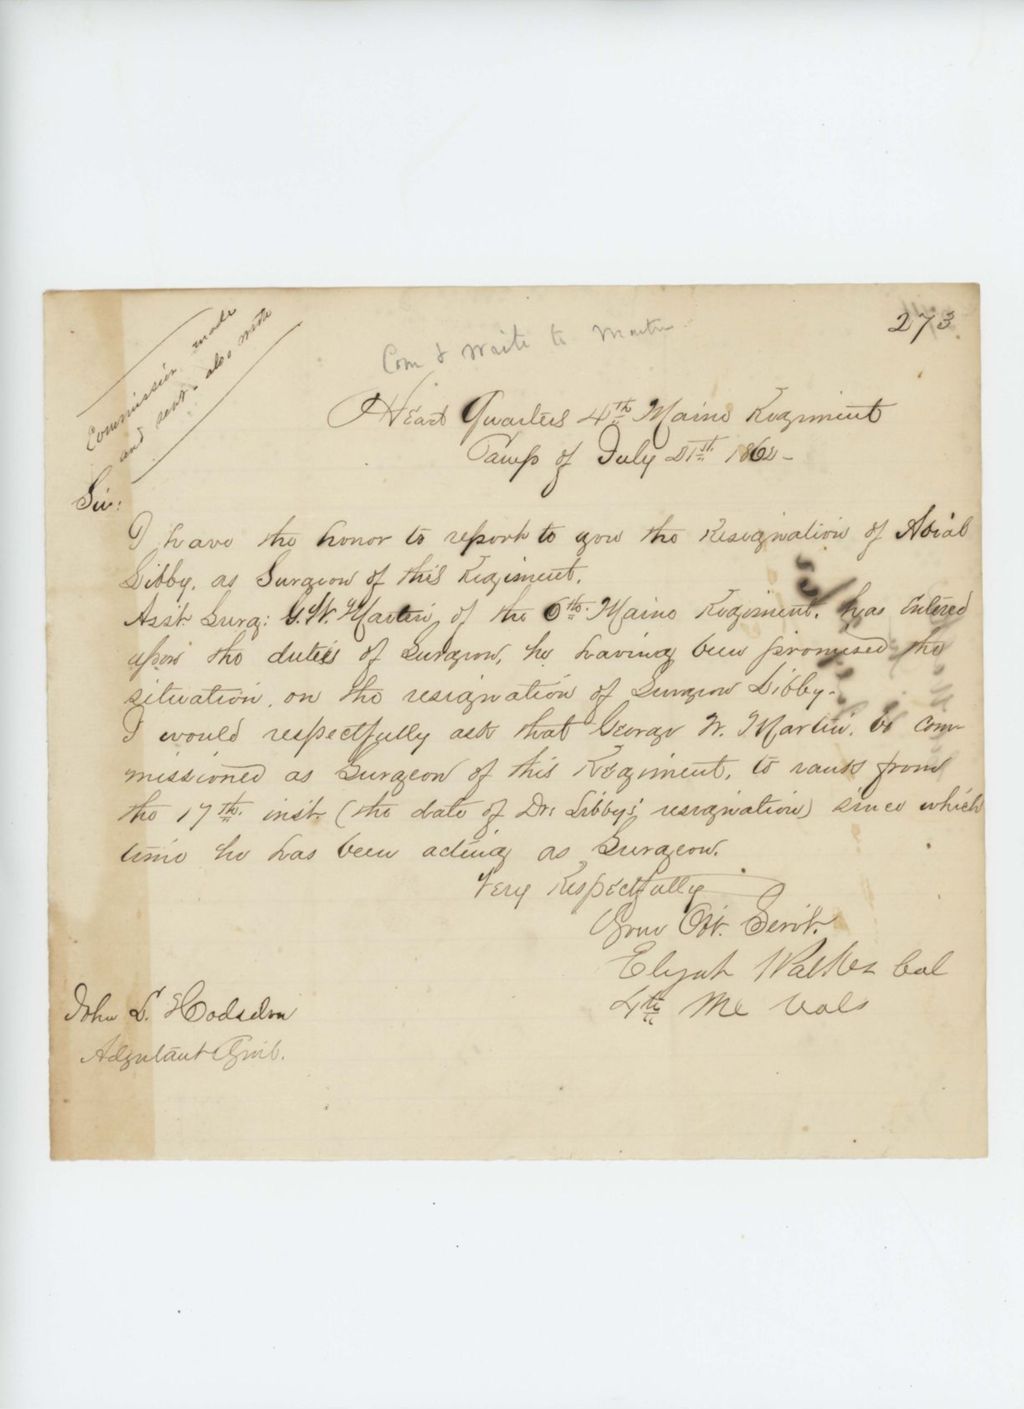 273
Com & write to Martin
Commission made
and sent. also wrote
Head Quarters 4th Maine Regiment
Camp of July 21st 1862-
Sir:
I have the honor to report to you the Resignation of Abial
Libby, as Surgeon of this Regiment.
Asst. Surg: G. W. Martin, of the 6th Maine Regiment, has entered
upon the duties of Surgeon, he having been promised the
situation, on the resignation of Surgeon Libby-
I would respectfully ask that George W. Martin, be com-
missioned as Surgeon of this Regiment, to rank from
the 17th inst. (the date of Dr. Libby's resignation) since which
time he has been acting as Surgeon.
Very Respectfully
Your Obt. Servt.
Elijah Walker Col
4th Me Vols
John L. Hodsdon
Adjutant Genl.